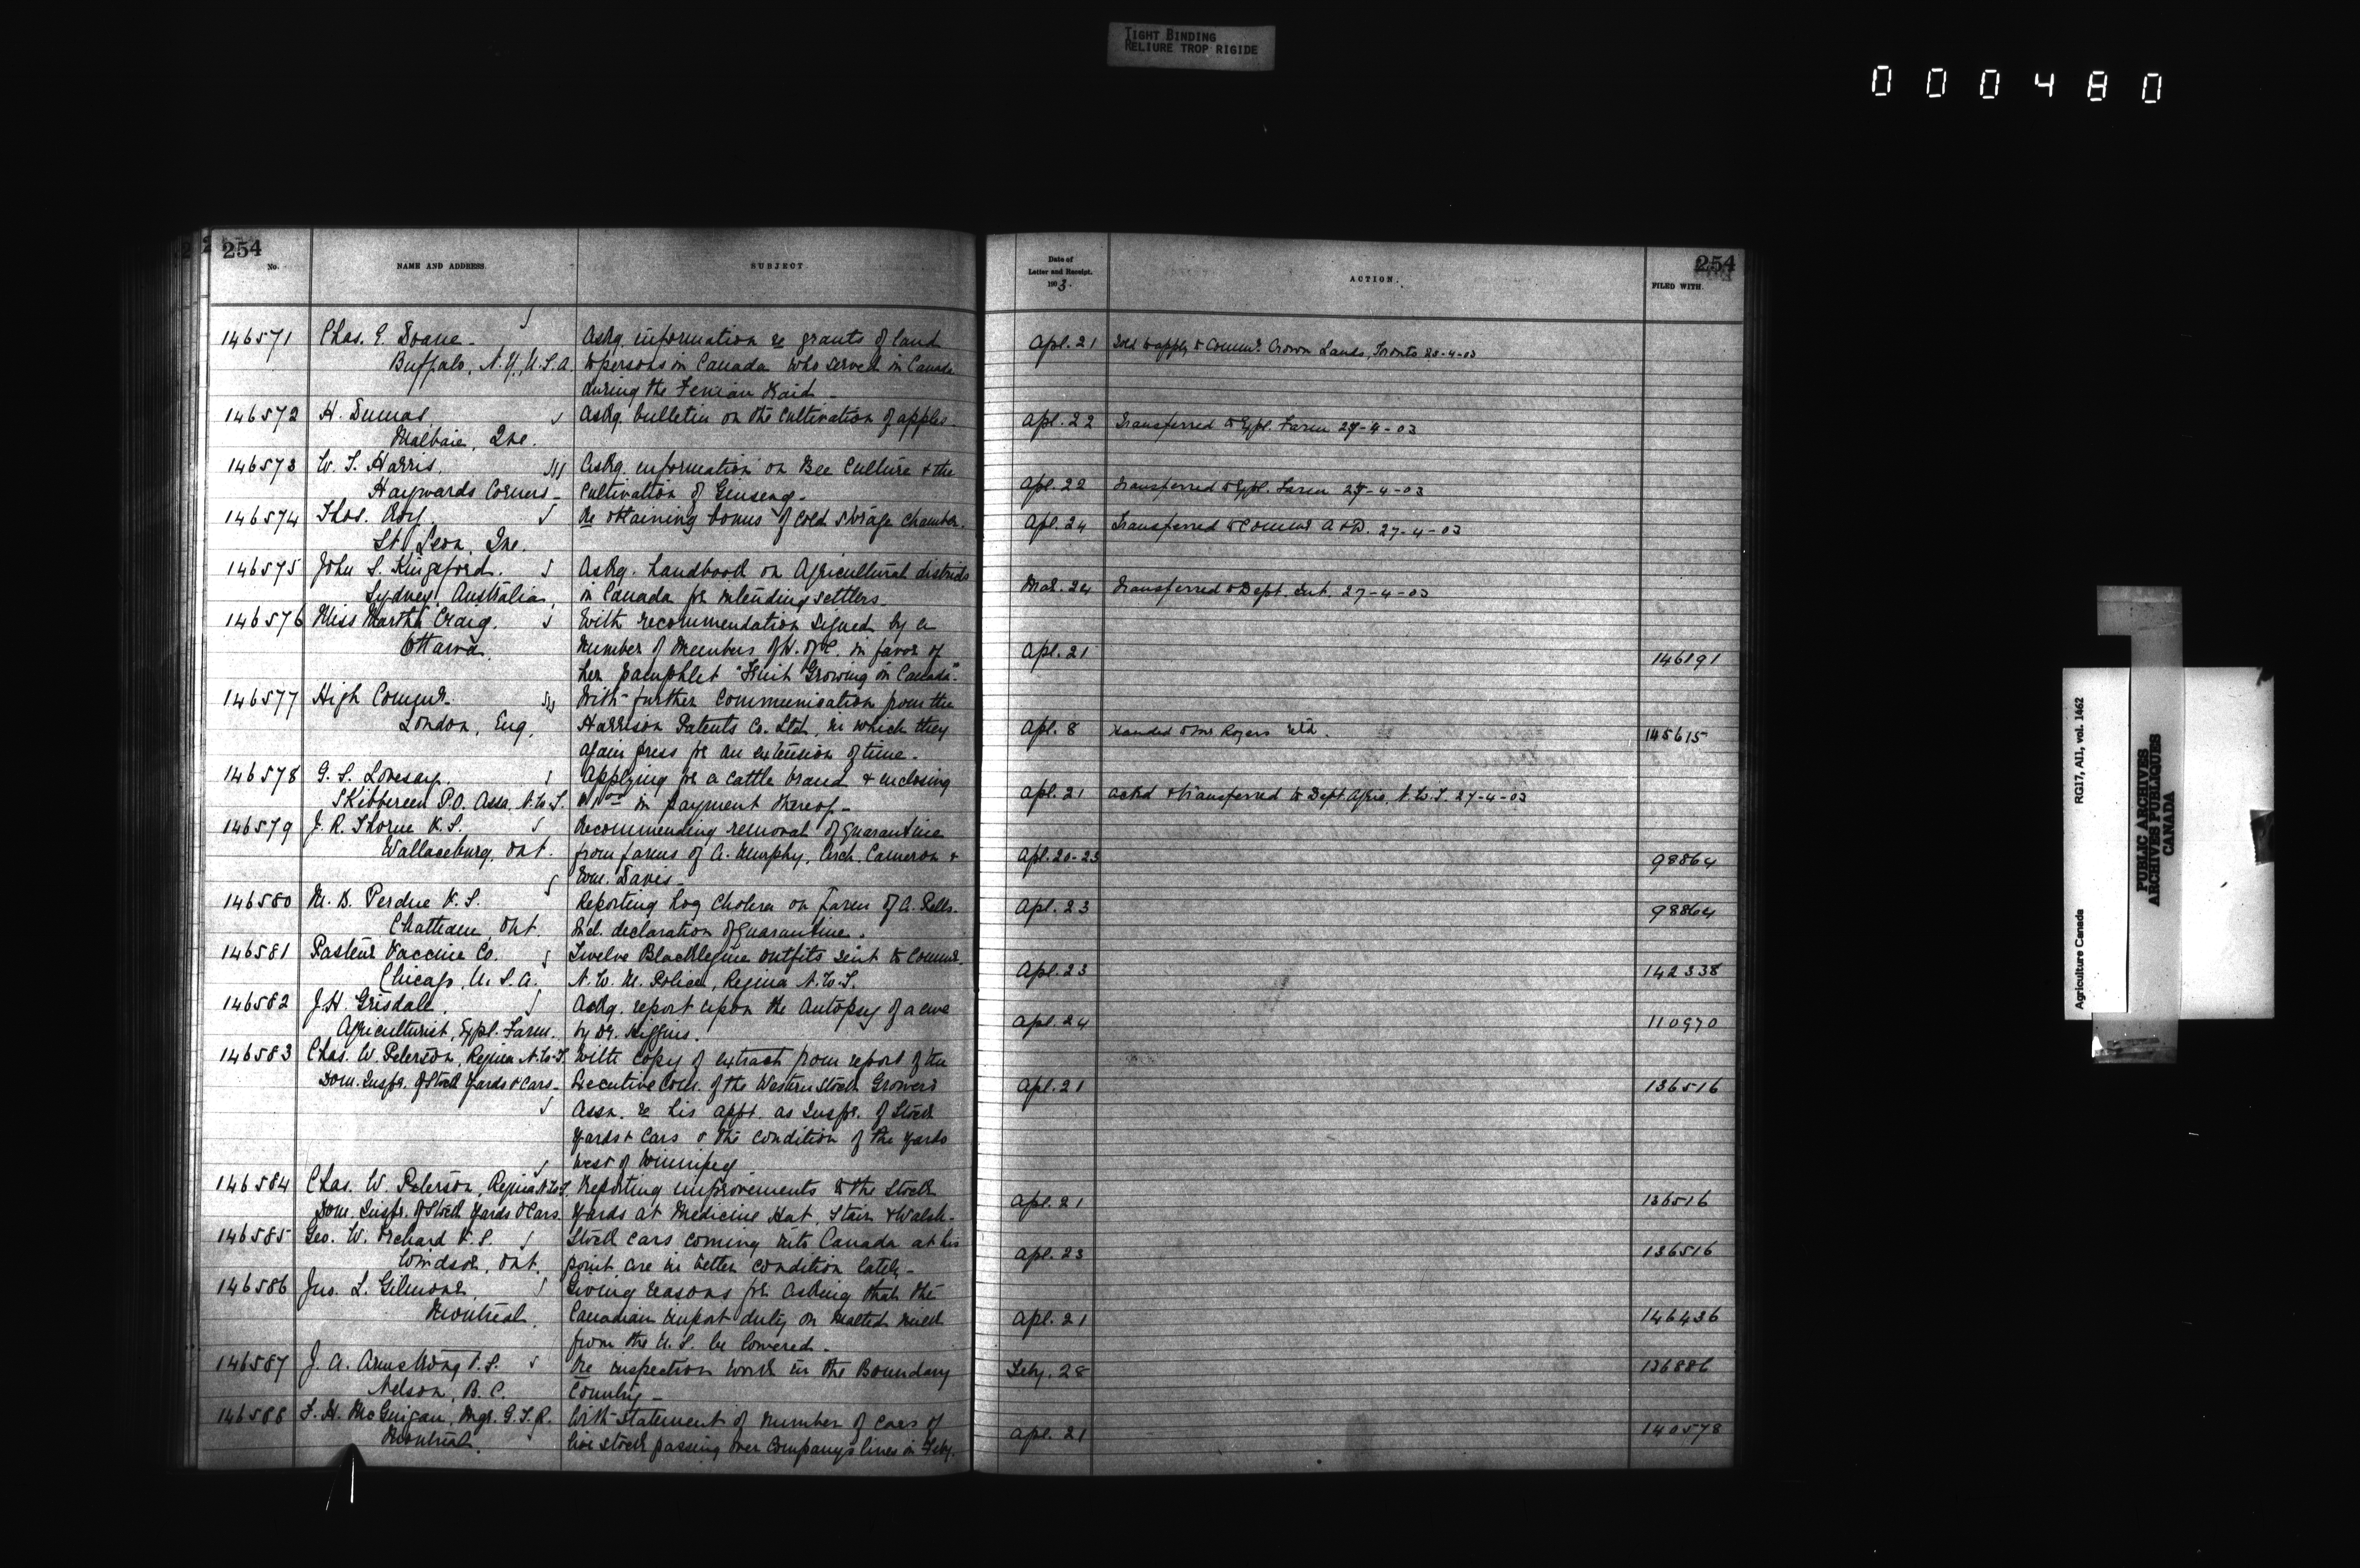 TIGHT BINDING
RELIURE TROP RIGIDE
000480
254
No.
NAME AND ADDRESS.
SUBJECT
Date of
Letter and Receipt.
1903.
ACTION.
FILED WITH.
254
146571 Chas. E. Doane - Askg. information re grants of land Apl. 21 Told to apply to Commr. Crown Lands, Toronto 23-4-03
Buffalo, N.Y., U.S.A. to persons in Canada who served in Canada
during the Fenian Raid -
146572 H. Dumas Askg. bulletin on the cultivation of apples. Apl. 22 Transferred to Expl. Farm 27-4-03
Malbaie, Que.
146573 W. T. Harris. Askg. information on Bee Culture & the
Haywards Corners - Cultivation of Ginseng - Apl. 22 Transferred to Expl. Farm 27-4-03
146574 Thos. Roy. Re obtaining bonus of cold storage chamber. Apl. 24 Transferred to Commr A & D. 27-4-03
St. Leon, Que.
146575 John S. Kingsford. Askg. handbook on Agricultural districts
Sydney, Australia in Canada for intending settlers - Mar. 24 Transferred to Dept. Int. 27-4-03
146576 Miss Martha Craig. With recommendation signed by a
Ottawa. number of Members of H. of C. in favor of Apl. 21 146191
her pamphlet "Fruit Growing in Canada".
146577 High Commr. With further communication from the
London, Eng. Harrison Patents Co. Ltd, in which they Apl. 8 Handed to Mr Rogers 145615
again press for an extension of time -
146578 G. S. Lovesay. Applying for a cattle brand & enclosing
Skibbereen P.O. Assa. N.W.T. in payment thereof - Apl. 21 ackd & transferred to Dept. Agric. N.W.T. 27-4-03
146579 J. R. Thorne V.S. Recommending removal of quarantine
Wallaceburg, Ont. from farms of A. Murphy, Arch. Cameron & Apl. 20-23 98864
Wm. Daves -
146580 M. B. Perdue V.S. Reporting hog cholera on farm of A. Apl. 23 98864
Chatham Ont. Incl. declaration of quarantine.
146581 Pasteur Vaccine Co. Twelve Blacklegine outfits sent to Commr.
Chicago, U.S.A. N.W.M. Police, Regina N.W.T. Apl. 23 142338
146582 J.H. Grisdale. Askg. report upon the autopsy of a ewe
Agriculturist, Expl. Farm. by Dr. Higgins. Apl. 24 110970
146583 Chas. W. Peterson, Regina N.W.T. With copy of extract from report of the
Dom. Inspr. of Stock Yards & Cars - Executive Com. of the Western Stock Growers Apl. 21 136516
Assn. re his appt. as Inspr. of Stock
Yards & Cars & the condition of the yards
west of Winnipeg
146584 Chas. W. Peterson, Regina N.W.T. Reporting improvements to the Stock
Dom. Inspr. of Stock Yards & Cars. Yards at Medicine Hat, Stair & Walsh - Apl. 21 136516
146585 Geo. W. Orchard V.S. Stock cars coming into Canada at his
Windsor, Ont. point are in better condition lately - Apl. 23 136516
146586 Jno. L. Gilmour. Giving reasons for asking that the
Montreal. Canadian import duty on Malted milk Apl. 21 146436
from the U.S. be lowered -
146587 J. A. Armstrong V.S. Re inspection work in the Boundary Feby. 28 136886
Nelson, B.C. Country -
146588 F. H. McGuigan, Mgr. G.T.R. With statement of number of cars of
Montreal. live stock passing over Company's lines in Feby. Apl. 21 140578
Agriculture Canada
RG17, AII, vol. 1462
PUBLIC ARCHIVES
ARCHIVES PUBLIQUES
CANADA